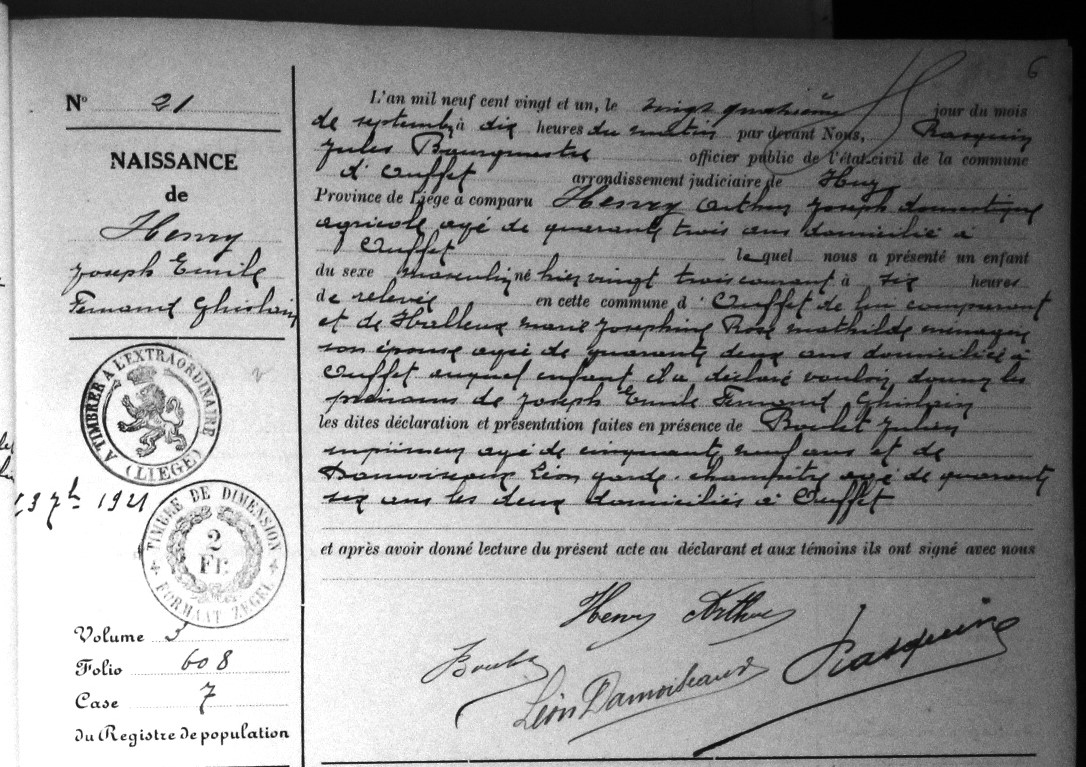 6
N° 21
NAISSANCE
de
Henry
Joseph Emile
Fernand Ghislain
A TIMBRER A L'EXTRAORDINAIRE
(LIEGE)
23 7b 1921
TIMBRE DE DIMENSION
2
FR.
FORMAAT ZEGEL
Volume 5
Folio 608
Case 7
du Registre de population
L'an mil neuf cent vingt et un, le vingt quatrième jour du mois
de septembre à dix heures du matin par devant Nous, Rasquin
Jules Bourgmestre officier public de l'état-civil de la commune
d'Ouffet arrondissement judiciaire de Huy
Province de Liége a comparu Henry Arthur Joseph domestique
agricole agé de quarante trois ans domicilié à
Ouffet lequel nous a présenté un enfant
du sexe masculin né hier vingt trois courant à six heures
de relevée en cette commune d'Ouffet de lui comparant
et de Halleux Marie Josephine Rose Mathilde ménagère
son épouse agée de quarante deux ans domiciliée à
Ouffet auquel enfant il a déclaré vouloir donner les
prénoms de Joseph Emile Fernand Ghislain
les dites déclaration et présentation faites en présence de Boulet Julien
imprimeur agé de cinquante neuf ans et de
Damoiseaux Léon garde-champêtre agé de quarante
six ans les deux domiciliés à Ouffet
et après avoir donné lecture du présent acte au déclarant et aux témoins ils ont signé avec nous
Henry Arthur
Boulet
Léon Damoiseaux
Rasquin